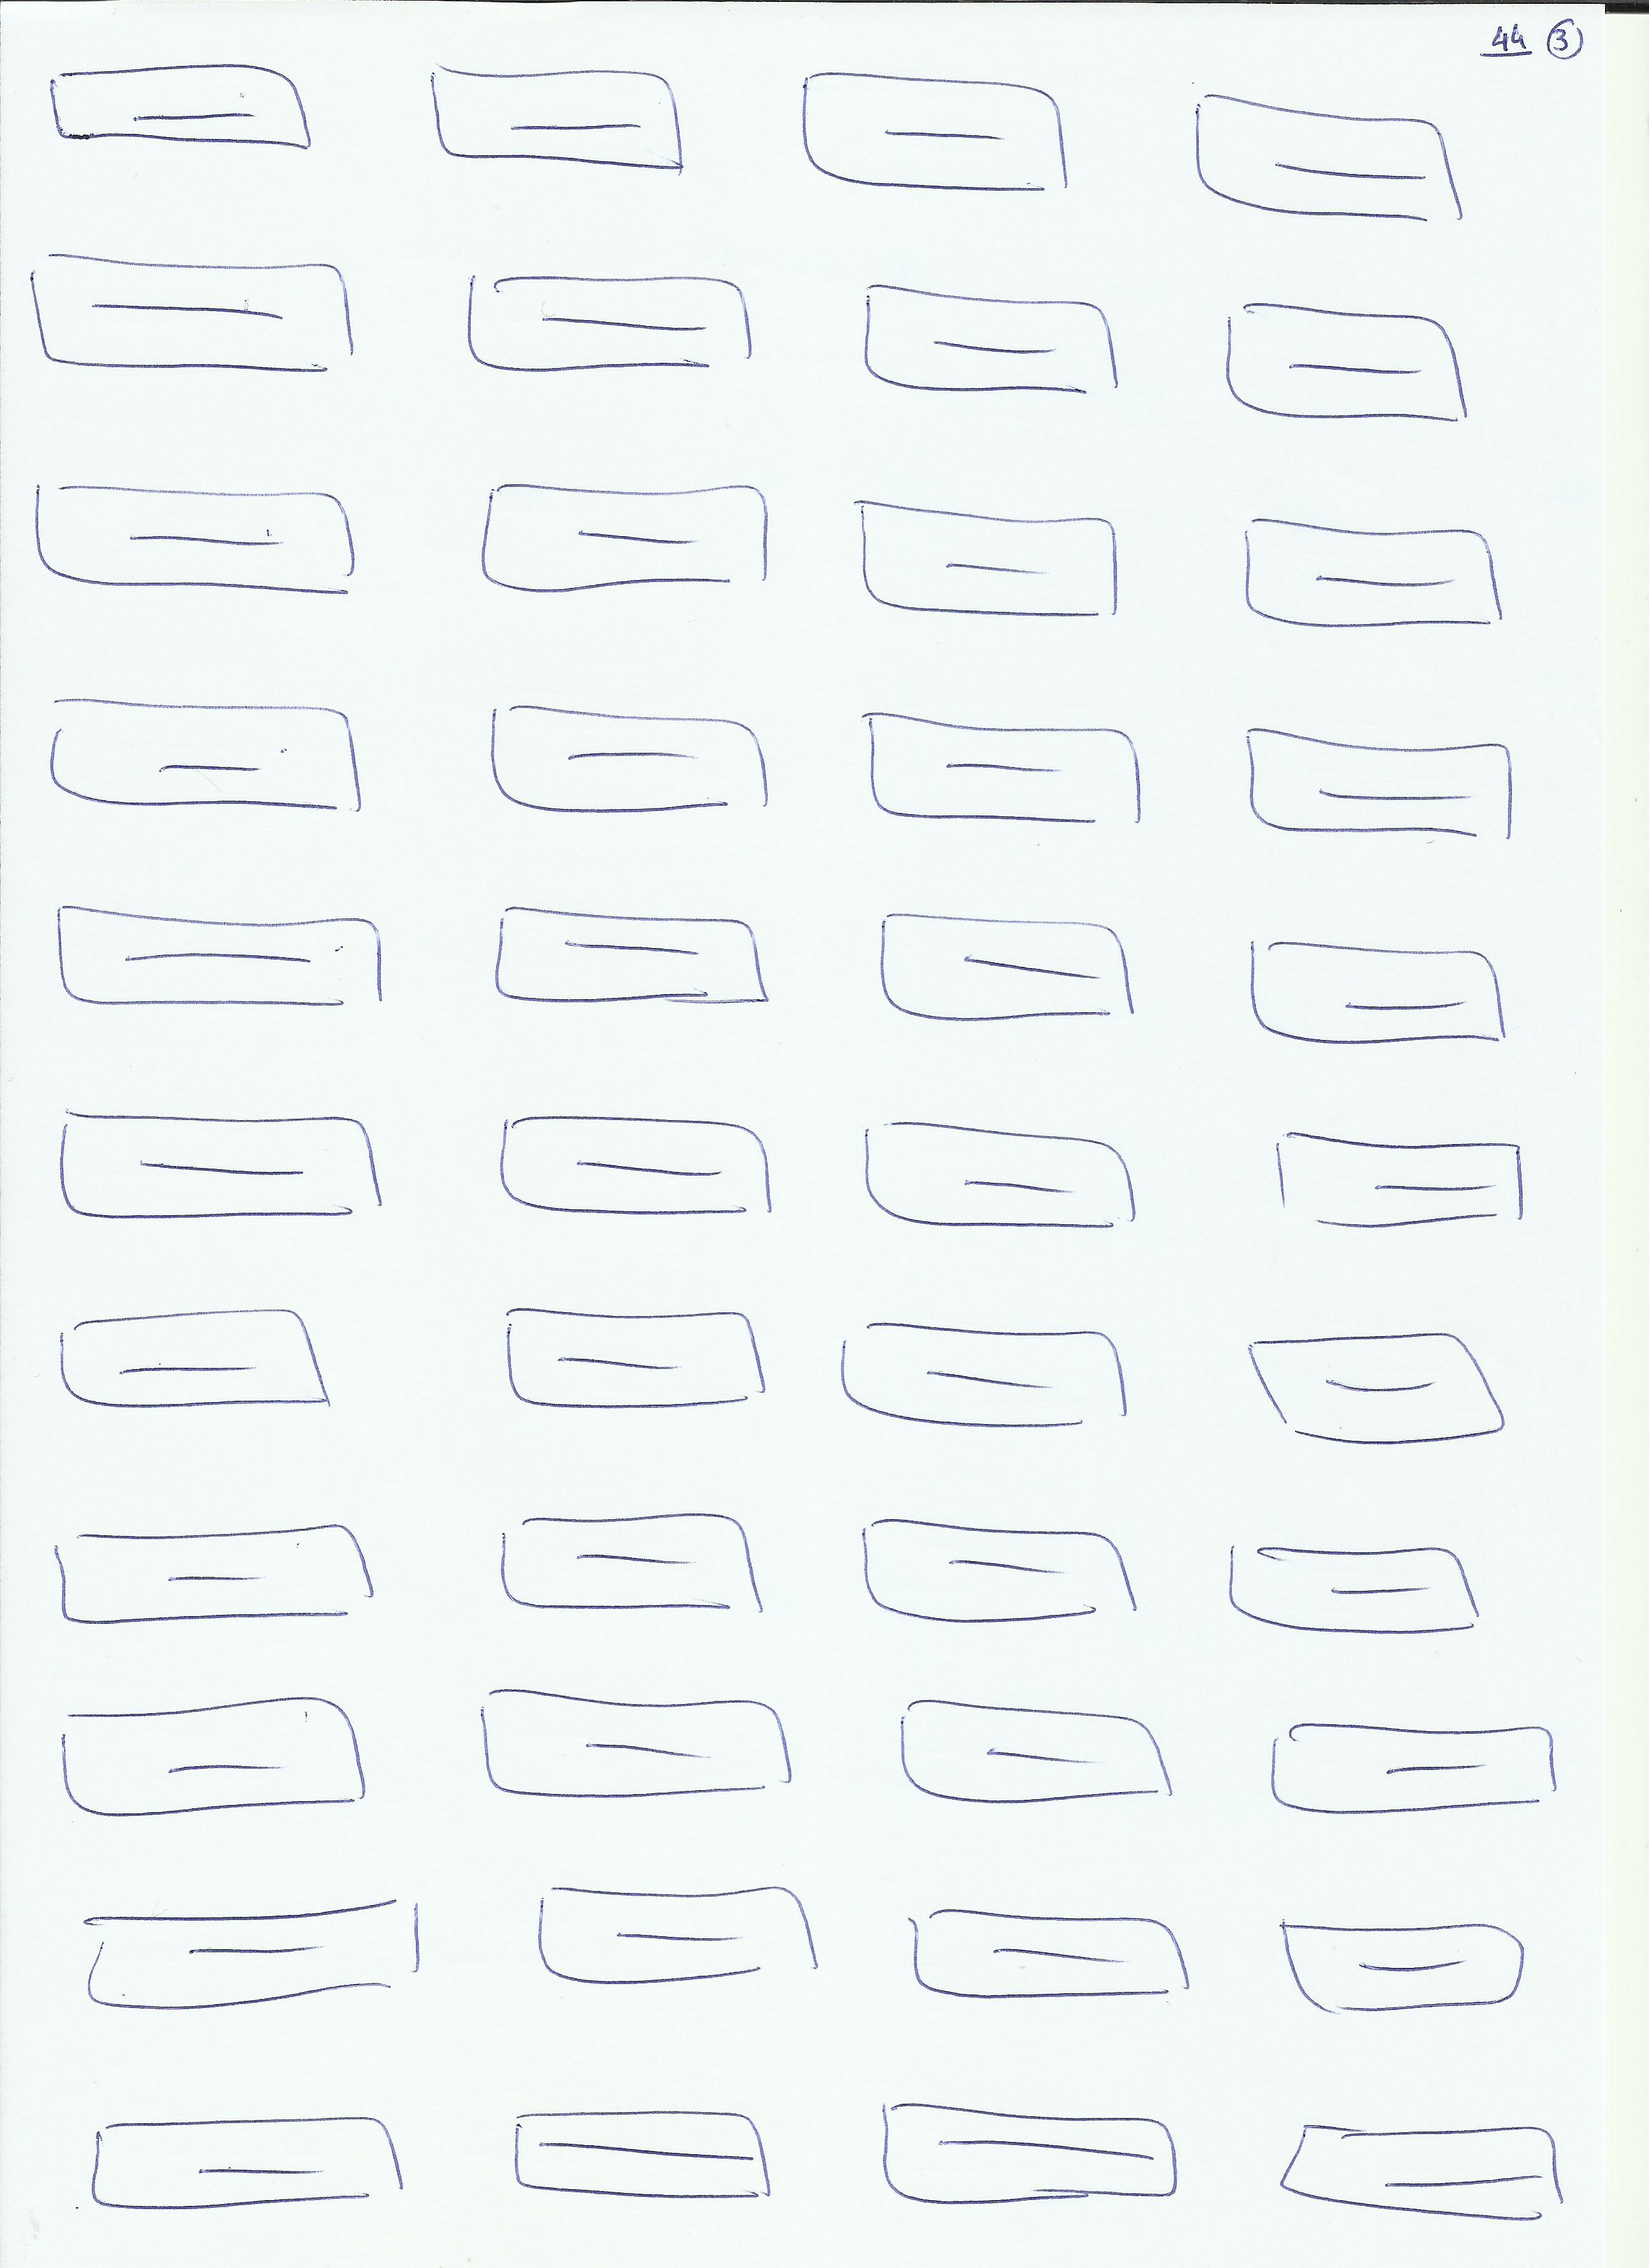 44 3